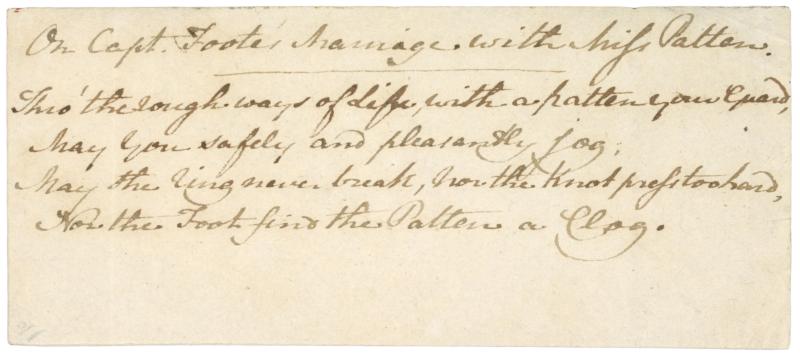 On Capt. Foote's Marriage with Miss Patten.
Thro' the rough ways of Life, with a patten your Guard,
May You safely and pleasantly jog,
May the Ring never break, Nor the Knot press too hard,
Nor the Foot find the Patten a Clog.